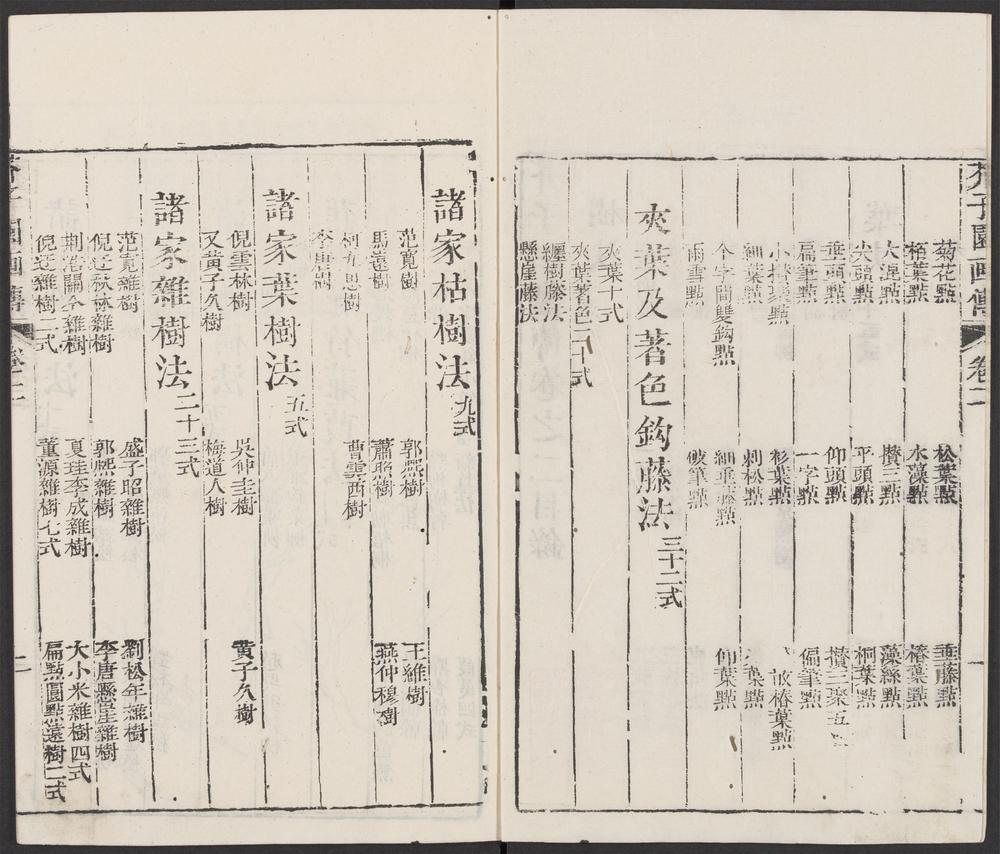 芥子園画傳
卷二
一
菊花點
松葉點
垂藤點
梧葉點
水藻點
椿葉點
大混點
攢三點
藻絲點
尖頭點
平頭點
桐葉點
垂頭點
仰頭點
攢三聚五
扁筆點
一字點
偏筆點
小攢聚點
杉葉點
椿葉點
細葉點
刺松點
葉點
个字間雙鈎點
細垂藤點
仰葉點
雨雪點
破筆點
夾葉及著色鈎藤法 三十二式
夾葉十式
夾葉著色二十式
纏樹藤法
懸崖藤法
諸家枯樹法 九式
范寬樹
郭熙樹
王維樹
馬遠樹
蕭照樹
燕仲穆樹
柯九思樹
曹雲西樹
李唐樹
諸家葉樹法 五式
倪雲林樹
吳仲圭樹
黃子久樹
又黃子久樹
梅道人樹
諸家雜樹法 二十三式
范寬雜樹
盛子昭雜樹
劉松年雜樹
倪迂秋林雜樹
郭熙雜樹
李唐懸崖雜樹
荆浩關仝雜樹
夏珪李成雜樹
大小米雜樹四式
倪迂雜樹二式
董源雜樹七式
扁點圓點遠樹二式
芥子園画傳
卷二
二